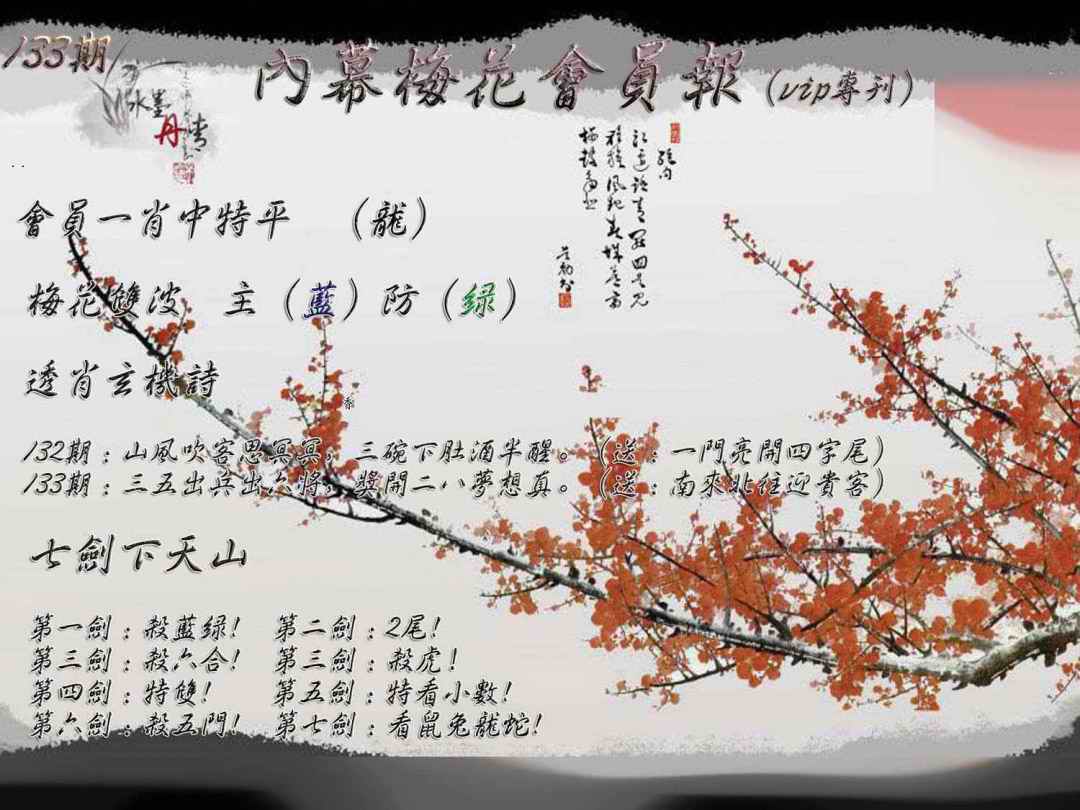 133期
內幕梅花會員報(vip專刊)
水墨
丹情
會員一肖中特平 (龍)
梅花雙波 主(藍)防(绿)
透肖玄機詩
132期:山風吹客思冥冥,三碗下肚酒半醒。(送:一門亮開四字尾)
133期:三五出兵出六將,獎開二八夢想真。(送:南來北往迎貴客)
七劍下天山
第一劍:殺藍绿! 第二劍:2尾!
第三劍:殺六合! 第三劍:殺虎!
第四劍:特雙! 第五劍:特看小數!
第六劍:殺五門! 第七劍:看鼠兔龍蛇!